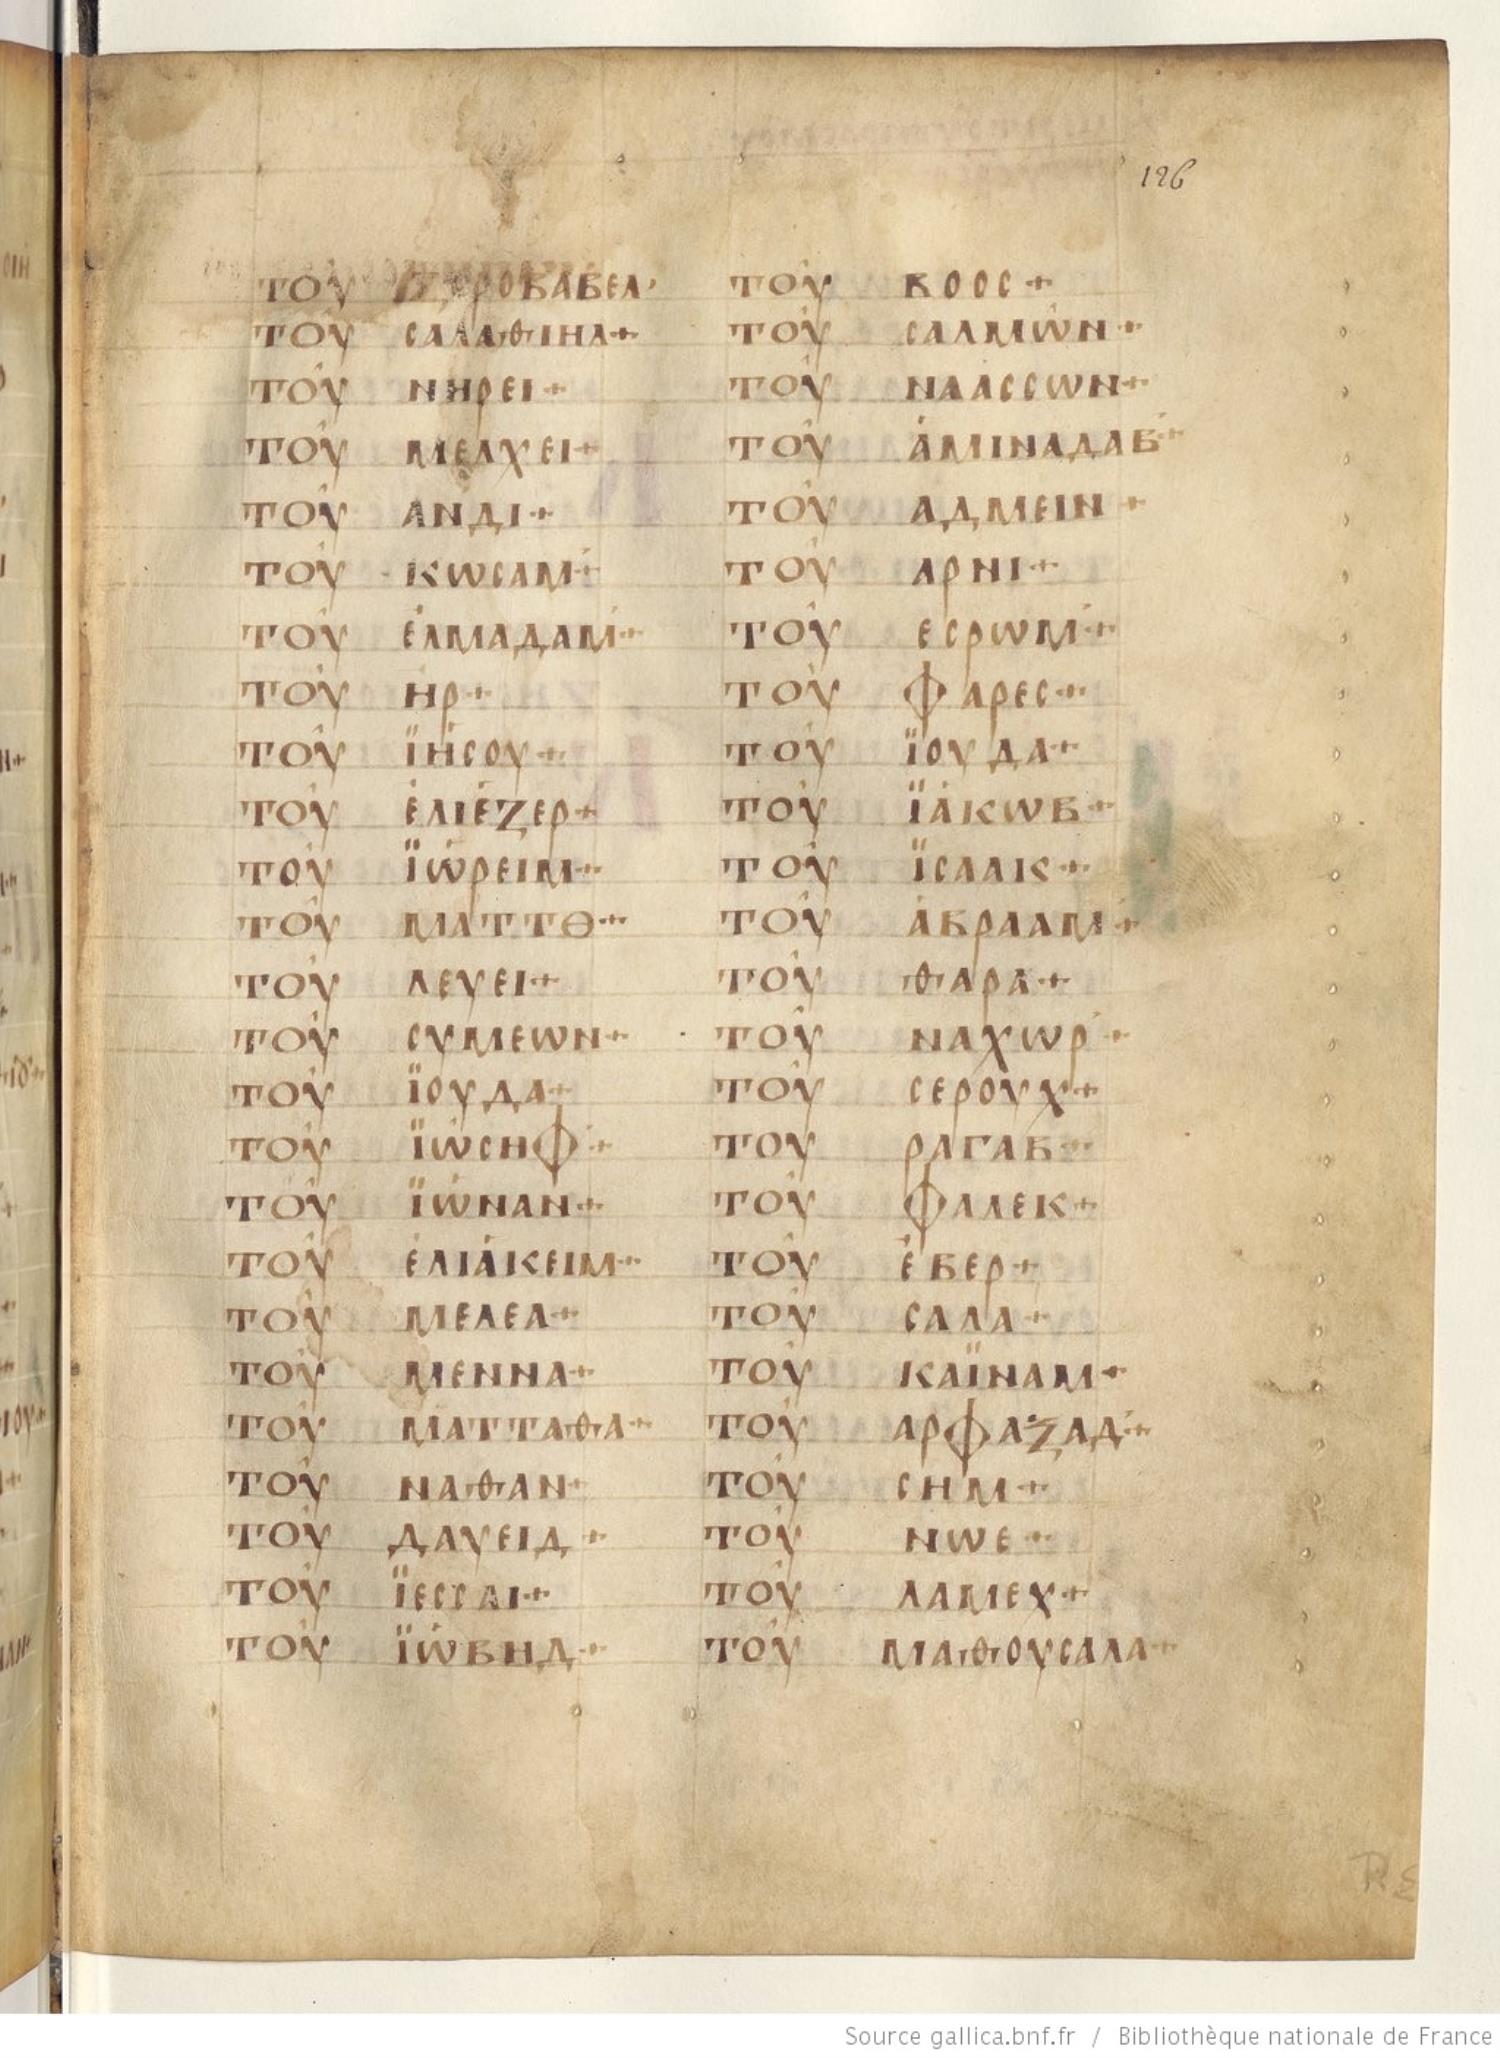 126
ΤΟΥ ΖΟΡΟΒΑΒΕΛ·
ΤΟΥ ϹΑΛΑΘΙΗΛ+
ΤΟΥ ΝΗΡΕΙ+
ΤΟΥ ΜΕΛΧΕΙ+
ΤΟΥ ΑΝΔΙ+
ΤΟΥ ΚΩϹΑΜ+
ΤΟΥ ΕΛΜΑΔΑΜ+
ΤΟΥ ΗΡ+
ΤΟΥ ΪΗϹΟΥ+
ΤΟΥ ΕΛΙΕΖΕΡ+
ΤΟΥ ΪΩΡΕΙΜ+
ΤΟΥ ΜΑΤΤΘ+
ΤΟΥ ΛΕΥΕΙ+
ΤΟΥ ϹΥΜΕΩΝ+
ΤΟΥ ΪΟΥΔΑ+
ΤΟΥ ΪΩϹΗΦ+
ΤΟΥ ΪΩΝΑΝ+
ΤΟΥ ΕΛΙΑΚΕΙΜ+
ΤΟΥ ΜΕΛΕΛ+
ΤΟΥ ΜΕΝΝΑ+
ΤΟΥ ΜΑΤΤΑΘΑ+
ΤΟΥ ΝΑΘΑΝ+
ΤΟΥ ΔΑΥΕΙΔ+
ΤΟΥ ΪΕϹϹΑΙ+
ΤΟΥ ΪΩΒΗΔ+
ΤΟΥ ΒΟΟϹ+
ΤΟΥ ϹΑΛΜΩΝ+
ΤΟΥ ΝΑΑϹϹΩΝ+
ΤΟΥ ΑΜΙΝΑΔΑΒ+
ΤΟΥ ΑΔΜΕΙΝ+
ΤΟΥ ΑΡΝΙ+
ΤΟΥ ΕϹΡΩΜ+
ΤΟΥ ΦΑΡΕϹ+
ΤΟΥ ΪΟΥΔΑ+
ΤΟΥ ΪΑΚΩΒ+
ΤΟΥ ΪϹΑΑΚ+
ΤΟΥ ΑΒΡΑΑΜ+
ΤΟΥ ΘΑΡΑ+
ΤΟΥ ΝΑΧΩΡ+
ΤΟΥ ϹΕΡΟΥΧ+
ΤΟΥ ΡΑΓΑΒ+
ΤΟΥ ΦΑΛΕΚ+
ΤΟΥ ΕΒΕΡ+
ΤΟΥ ϹΑΛΑ+
ΤΟΥ ΚΑΪΝΑΜ+
ΤΟΥ ΑΡΦΑΞΑΔ+
ΤΟΥ ϹΗΜ+
ΤΟΥ ΝΩΕ+
ΤΟΥ ΛΑΜΕΧ+
ΤΟΥ ΜΑΘΟΥϹΑΛΑ+
Source gallica.bnf.fr / Bibliothèque nationale de France